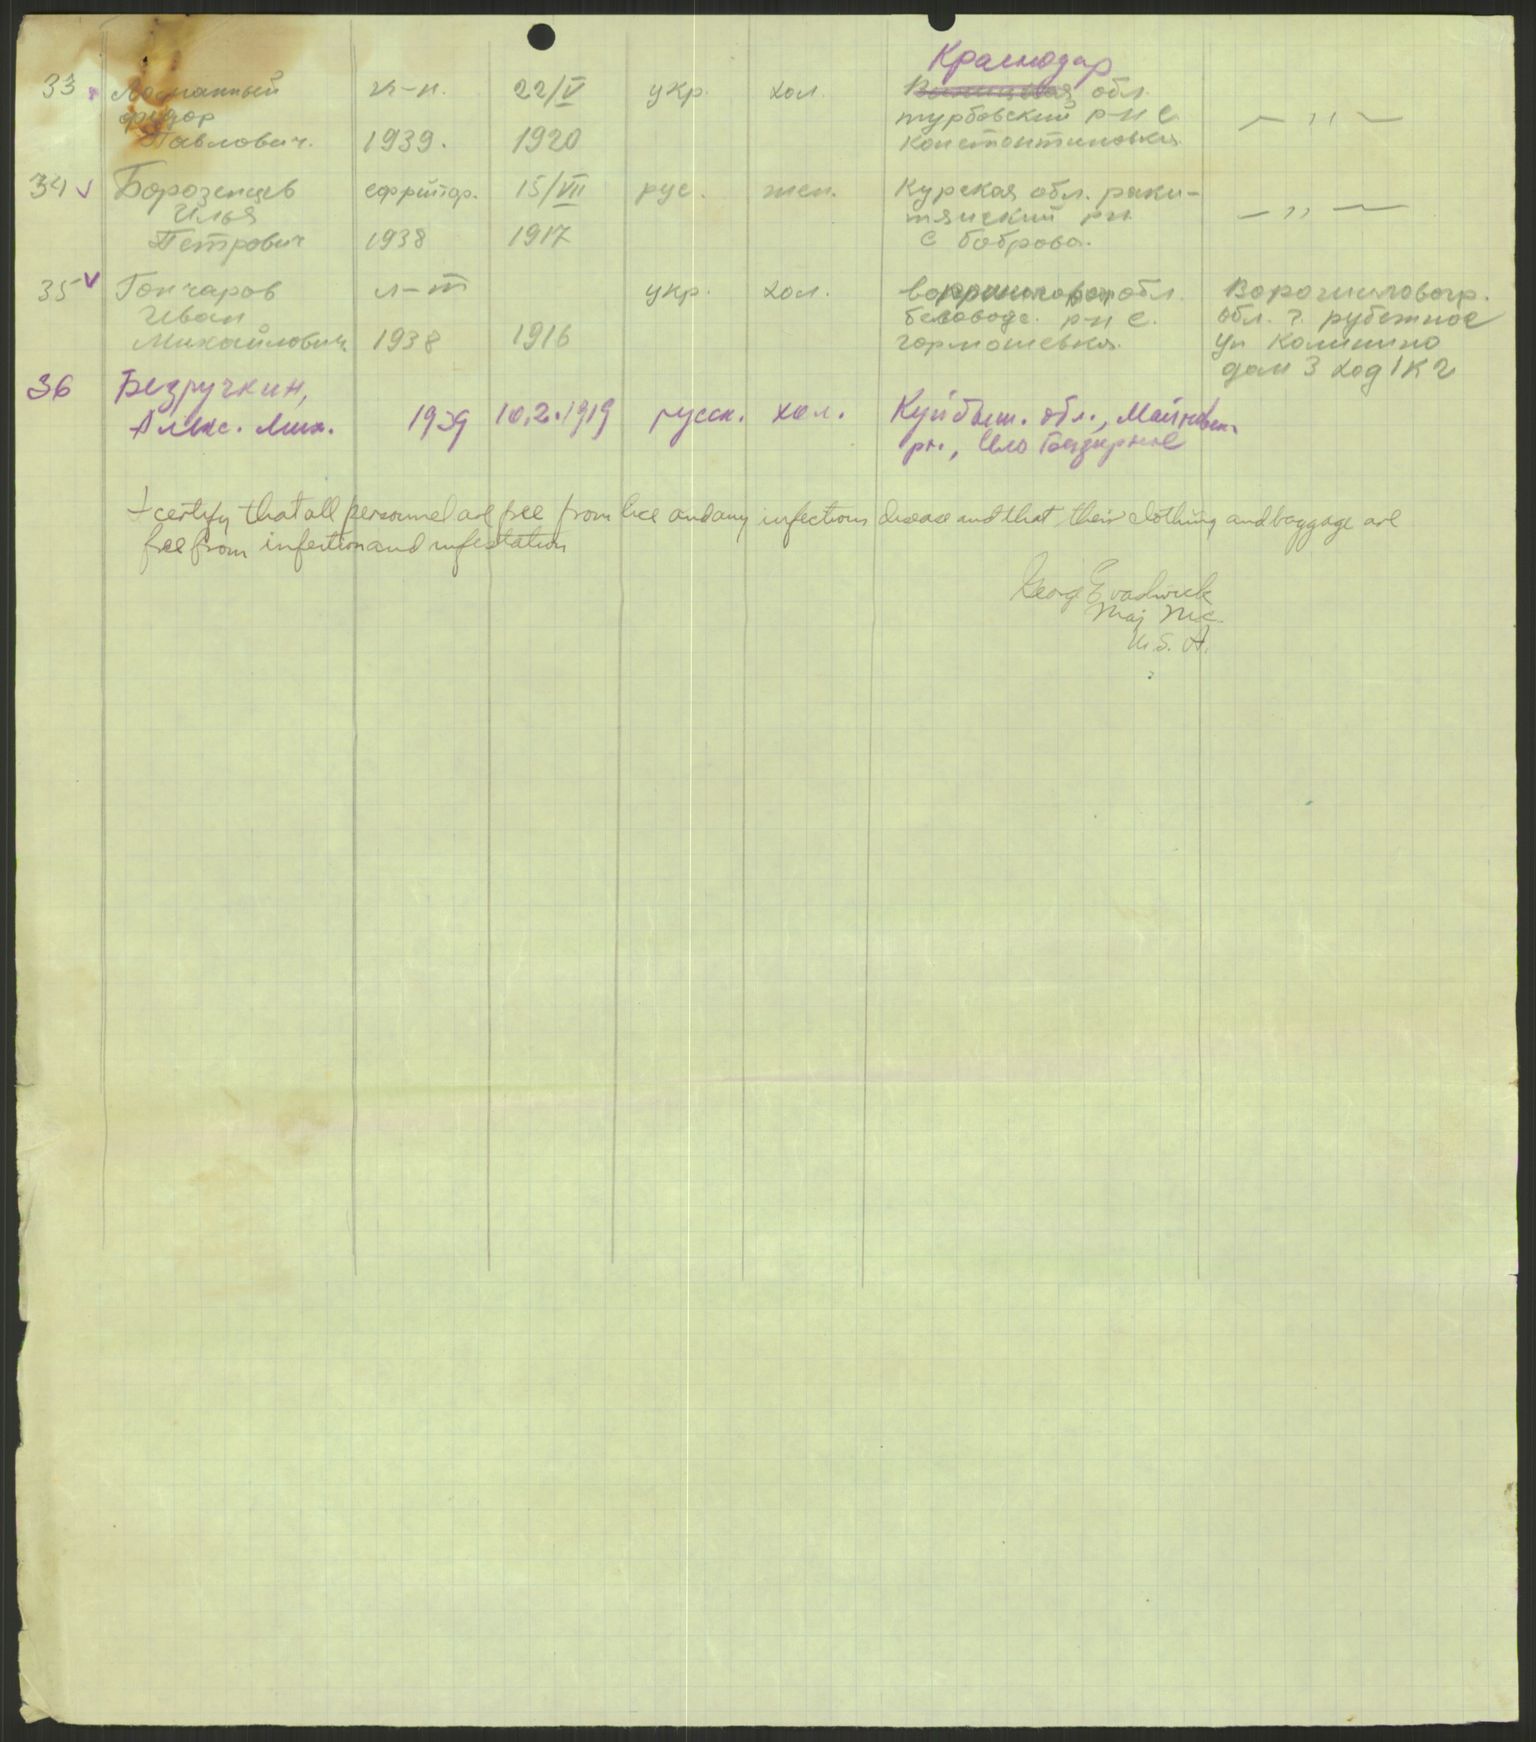 Краснодар
33 Ломанный к-н. 22/V укр. хол. обл.
Федор турбовский р-н с
Павлович. 1939. 1920 Константиновка. — ,, —
34 v Борозенцев ефрейтор. 15/VII рус. жен. Курская обл. раки-
Илья тянский рн. — ,, —
Петрович 1938 1917 с боброва.
35 v Гончаров л-т укр. хол. обл. Ворошиловогр.
Иван беловодс. р-н с. обл. г. рубежное
Михайлович 1938 1916 ул Калинино
дом 3 ход 1 к 2
36 Безручкин,
Алекс. Мих. 1939 10.2.1919 русск. хол. Куйбыш. обл.,
рн., Село
I certify that all personnel are free from lice and any infectious disease and that their clothing and baggage are
free from infection and infestation
Maj MC.
U.S.A.